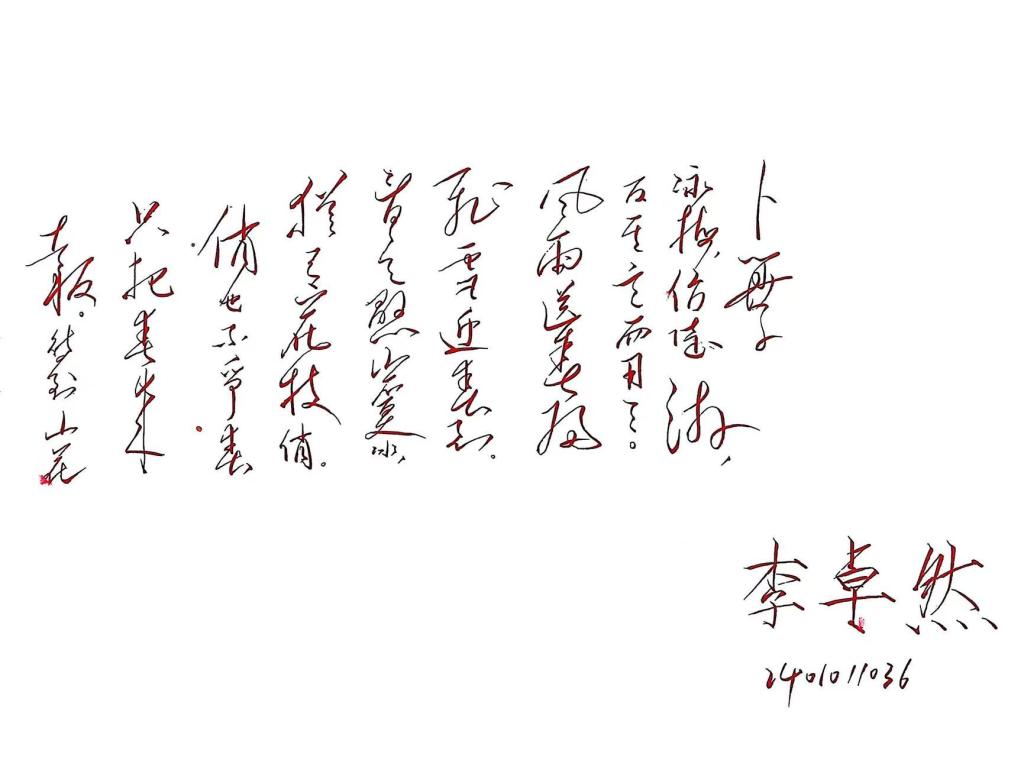 卜算子
咏梅,信陆游,
反其意而用之。
风雨送春归
飞雪迎春到。
首是悬崖百丈冰,
犹有花枝俏。
俏也不争春
只把春来
去报。待到山花
李卓然
2401011036